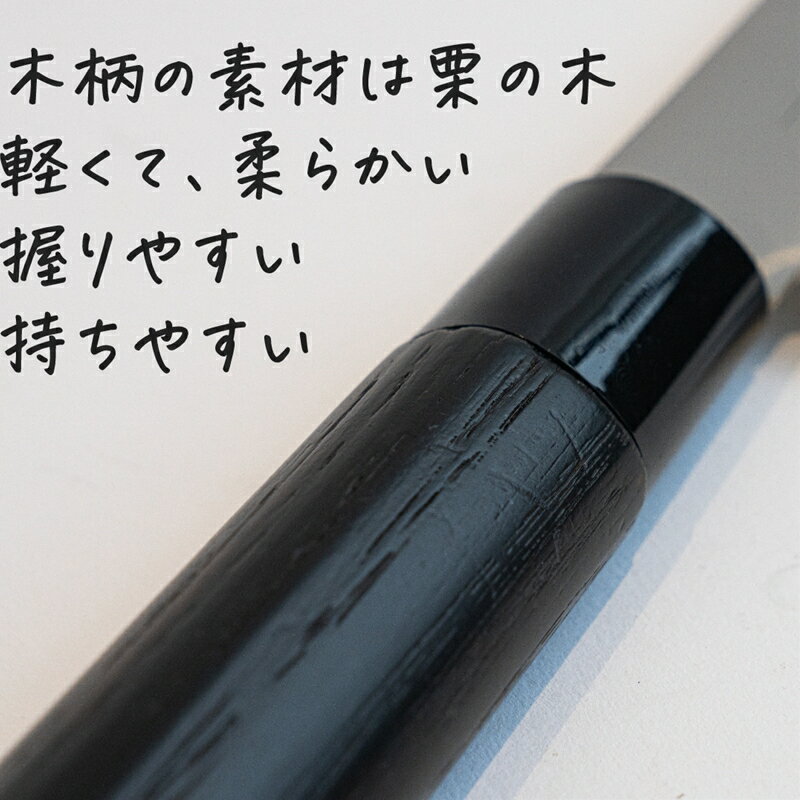 木柄の素材は栗の木
軽くて、柔らかい
握りやすい
持ちやすい